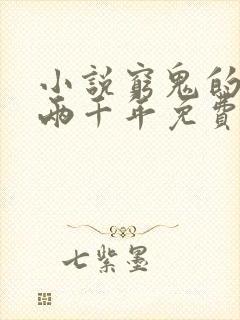 小說窮鬼的
兩千年免費
七紫墨